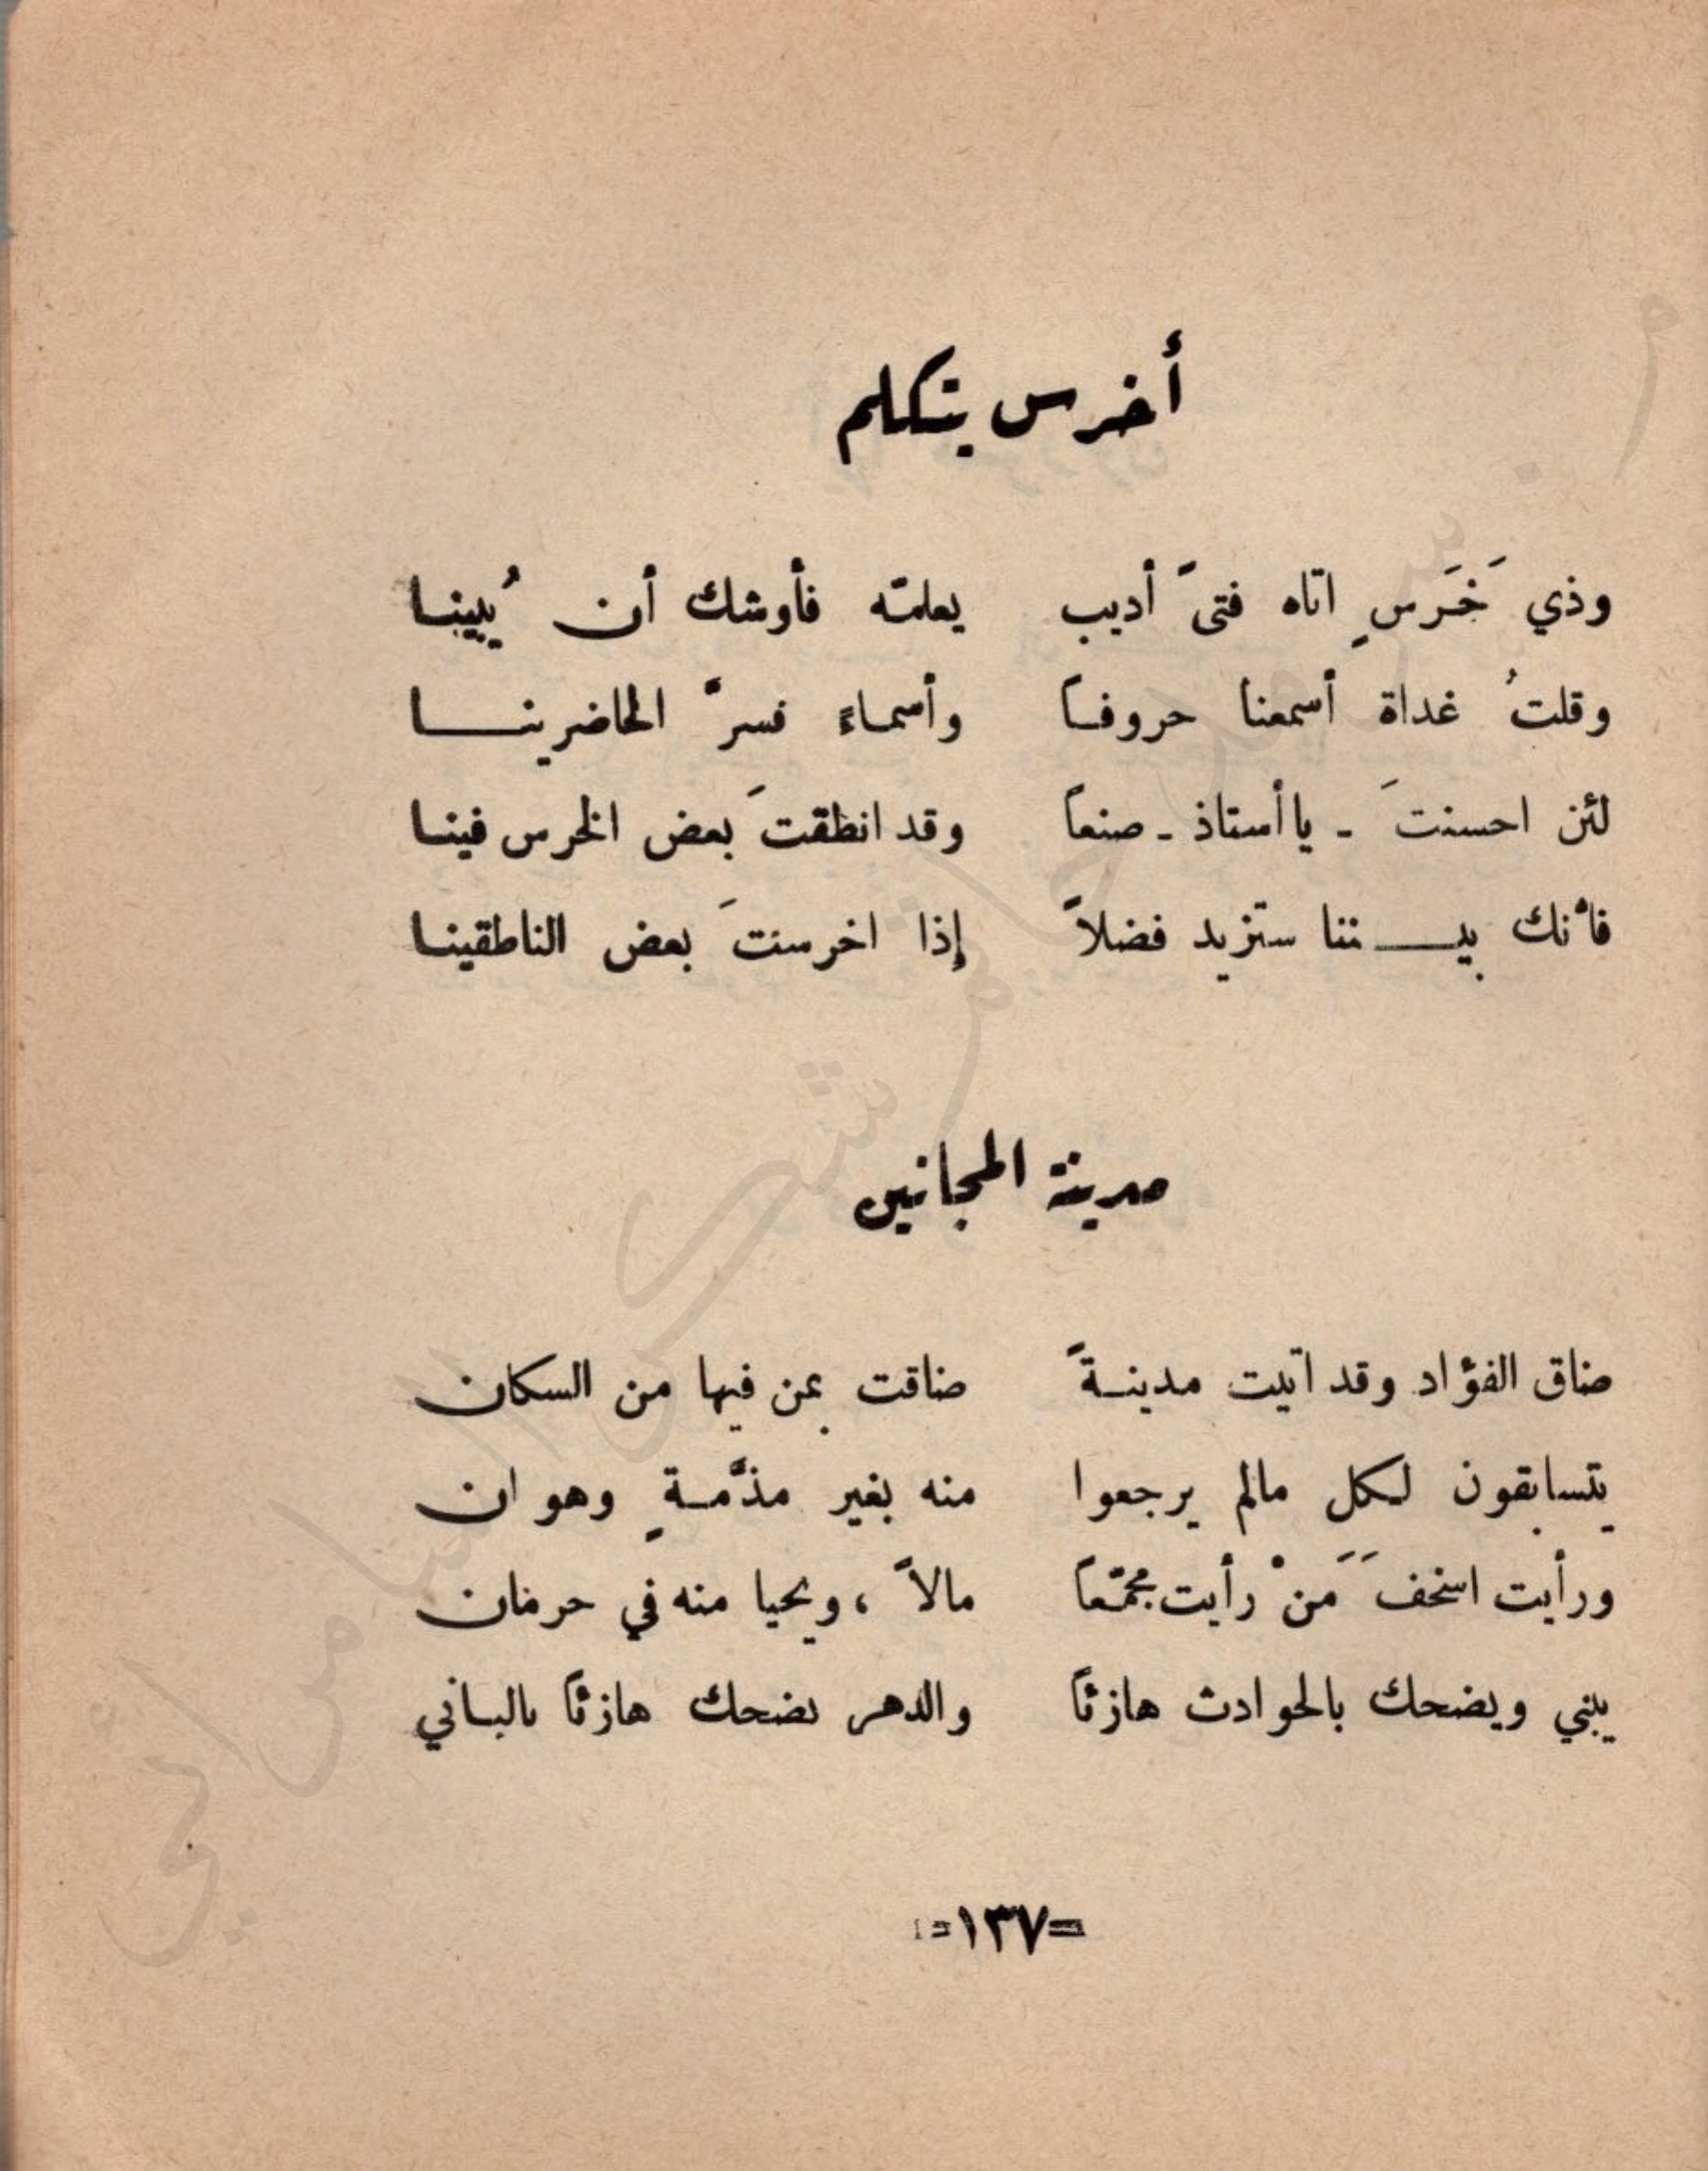 أخرس يتكلم
وذي خَرَسٍ اتاه فتىً أديب يعلمّه فأوشك أن يُبينا
وقلتُ غداة أسمعنا حروفاً وأسماءً فسرَّ الحاضرينا
لئن احسنتَ - يا أستاذ - صنعاً وقد انطقتَ بعض الخرس فينا
فأنك بيننا ستزيد فضلاً إذا اخرستَ بعض الناطقينا
مدينة المجانين
ضاق الفؤاد وقد اتيت مدينةً ضاقت بمن فيها من السكان
يتسابقون لكل مالم يرجعوا منه بغير مذمَّةٍ وهوان
ورأيت اسخفَ مَنْ رأيت مجمّعاً مالاً ، ويحيا منه في حرمان
يبني ويضحك بالحوادث هازئاً والدهر يضحك هازئاً بالباني
=١٣٧=